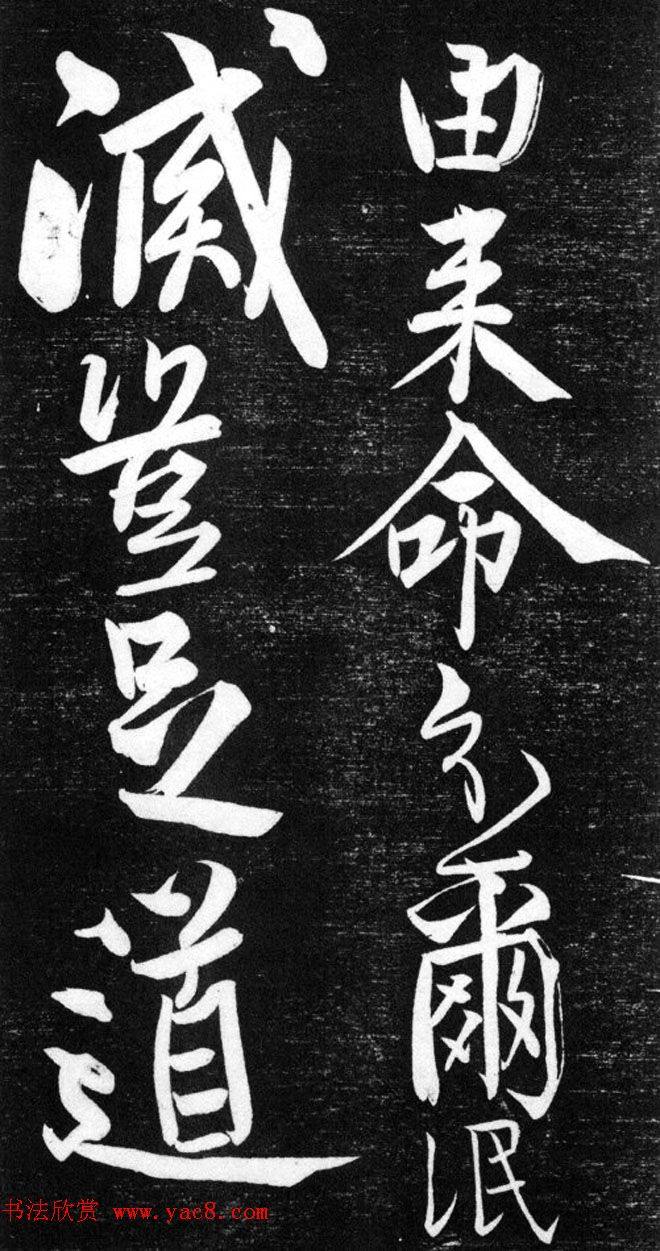 由来命分爾泯
滅豈足道
书法欣赏 www.yac8.com